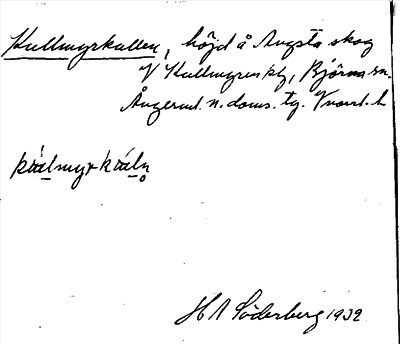 Kullmyrkullen, höjd å Angsta skog
V Kullmyren btg, Björna sn.
Ångerml. n. doms. tg. V norrl. l.
kúlmyrkúln̥
H A Söderberg 1932